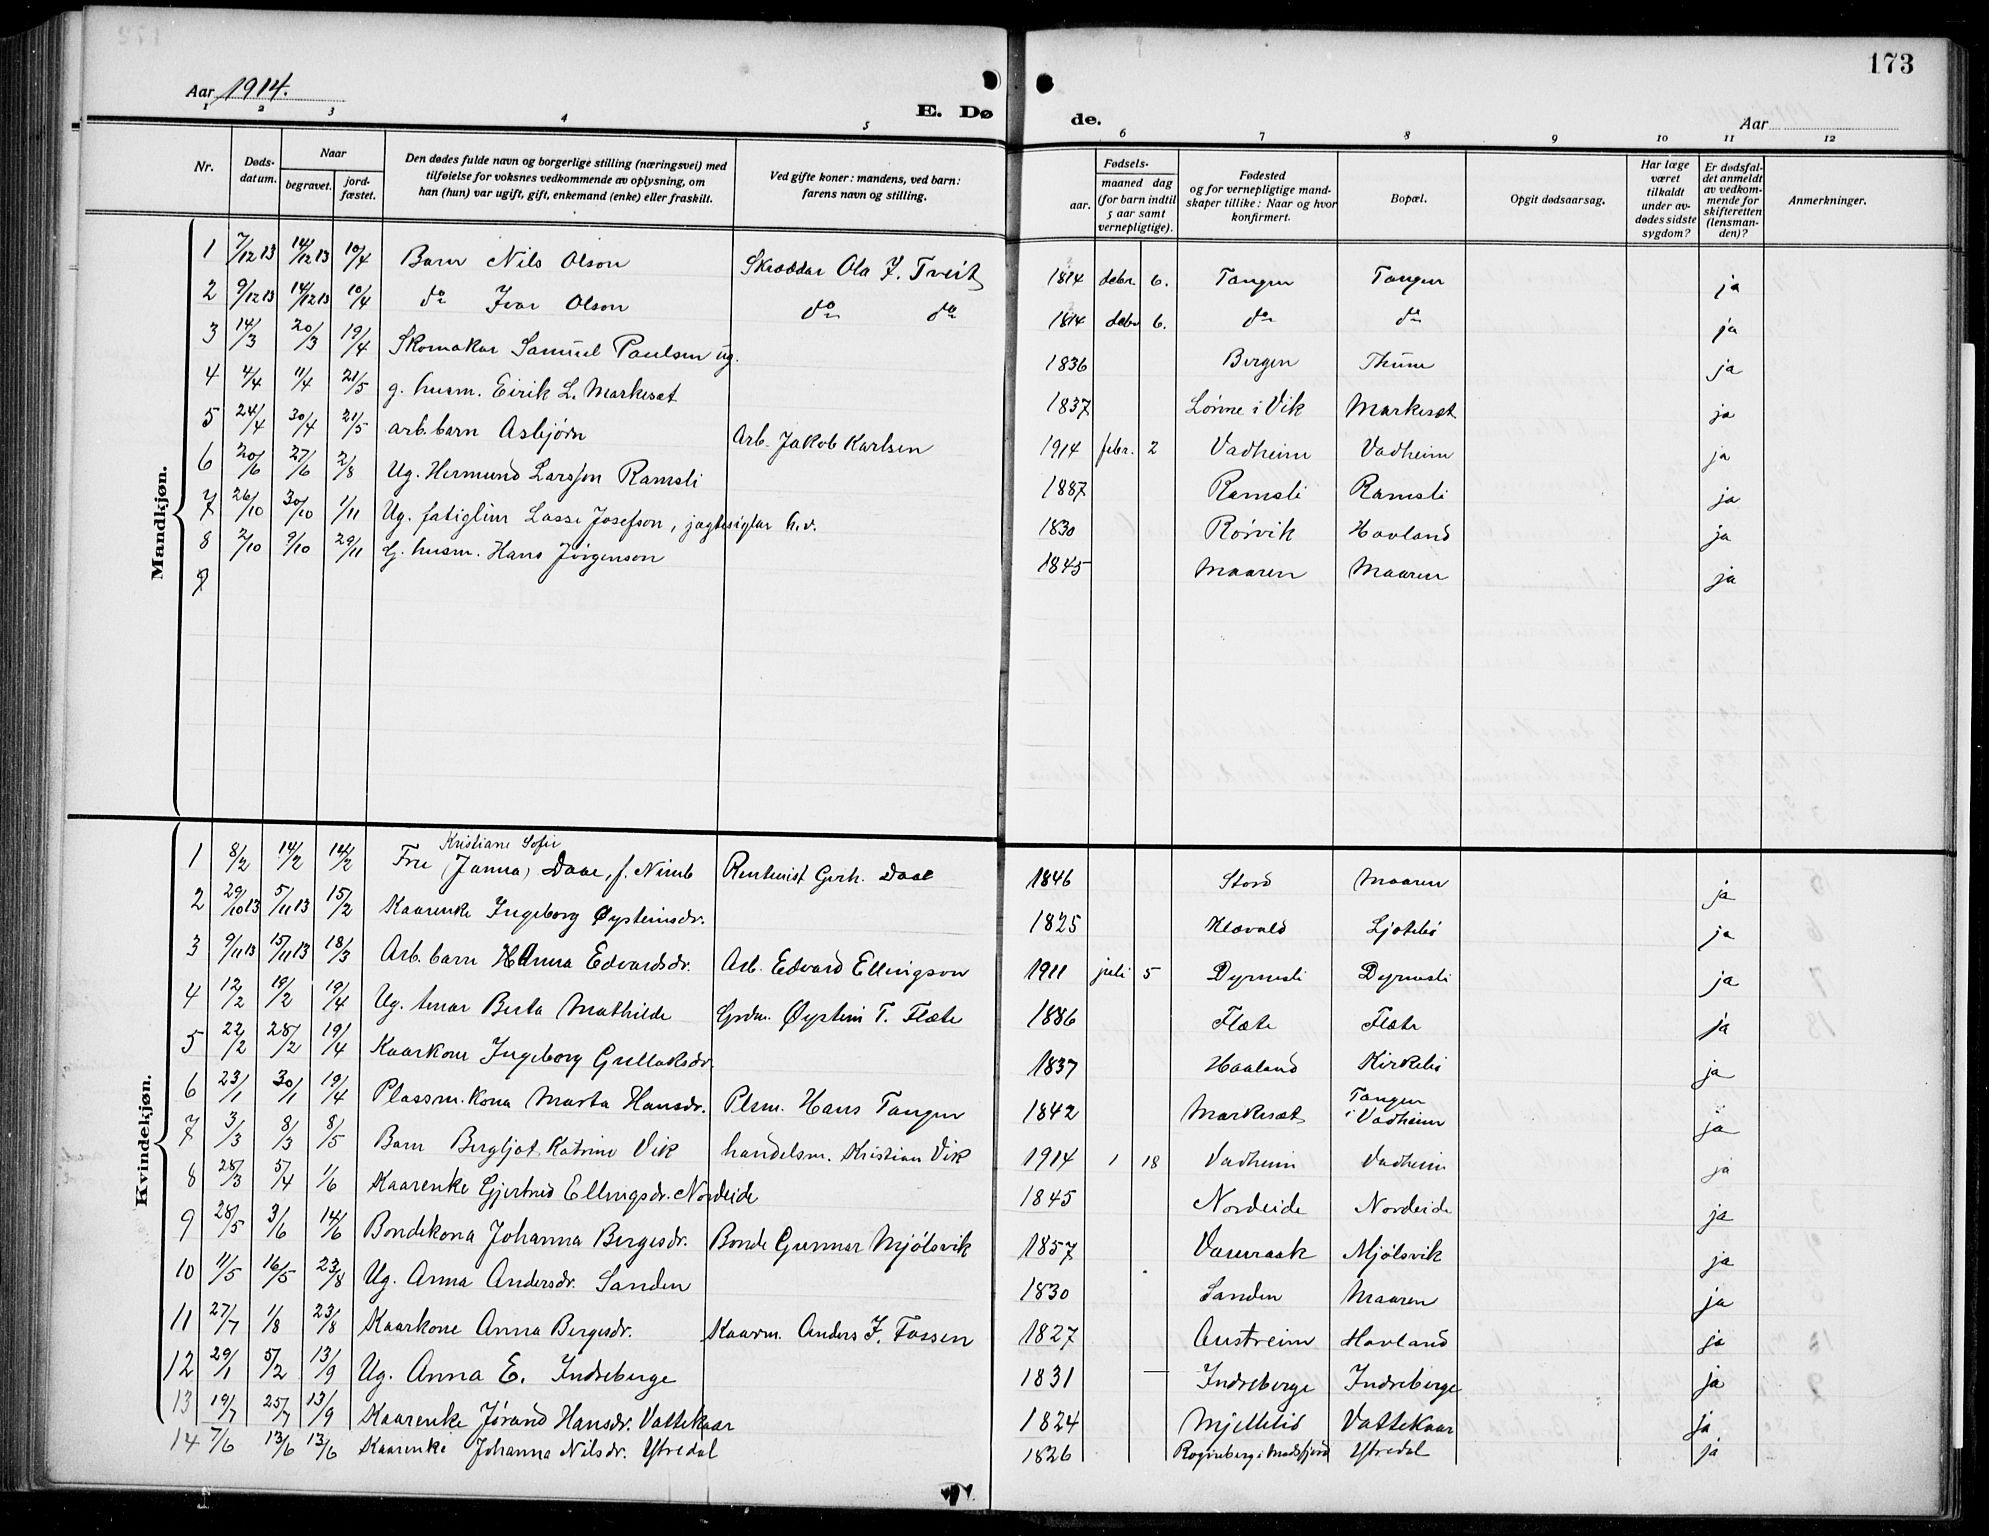 173
Aar 1914.
E. Døde.
Aar
1 2 3 4 5 6 7 8 9 10 11 12
Nr. | Døds-datum. | Naar begravet. | jord-fæstet. | Den dødes fulde navn og borgerlige stilling (næringsvei) med tilføielse for voksnes vedkommende av oplysning, om han (hun) var ugift, gift, enkemand (enke) eller fraskilt. | Ved gifte koner: mandens, ved barn: farens navn og stilling. | Fødsels- aar. | maaned dag (for barn indtil 5 aar samt vernepligtige). | Fødested og for vernepligtige mandskaper tillike: Naar og hvor konfirmert. | Bopæl. | Opgit dødsaarsag. | Har læge været tilkaldt under avdødes sidste sygdom? | Er dødsfaldet anmeldt av vedkommende for skifteretten (lensmanden)? | Anmerkninger.
Mandkjøn.
1 7/12 13 14/12 13 10/4 Barn Nils Olson Skræddar Ola J. Tveit 1814 debr. 6. Tangen Tangen ja
2 9/12 13 14/12 13 10/4 do Ivar Olson do do 1814 debr 6. do do ja
3 14/3 20/3 19/4 Skomakar Samuel Paulsen ug. 1836 Bergen Thune ja
4 4/4 11/4 21/5 g. husm. Eirik L. Markeset 1837 Lønne i Vik Markeset ja
5 24/4 30/4 21/5 arb. barn Asbjørn Arb. Jakob Karlsen 1914 febr. 2 Vadheim Vadheim ja
6 20/6 27/6 2/8 Ug. Hermund Larsson Ramsli 1887 Ramsli Ramsli ja
7 26/10 30/10 1/11 Ug. fatiglim Lasse Josefson, jagtesiglar h.v. 1830 Rørvik Hovland ja
8 2/10 9/10 29/11 G. husm. Hans Jørgenson 1845 Maaren Maaren ja
9
Kvindekjøn.
Kristiane Sofie
1 8/2 14/2 14/2 Fru (Janna) Daae, f. Nimb Rentenist Gerh. Daae 1846 Stord Maaren ja
2 29/10 13 5/11 13 15/2 Kaarenke Ingeborg Øysteinsdr. 1825 Klevald Ljotebø ja
3 9/11 13 15/11 13 18/3 Arb. barn Hanna Edvardsdr. Arb. Edvard Ellingson 1911 juli 5 Dyrnesli Dyrnesli ja
4 12/2 19/2 19/4 Ug. tenar Berta Mathilde Grdm. Øystein T. Flete 1886 Flete Flete ja
5 22/2 28/2 19/4 Kaarkone Ingeborg Gullaksdr. 1837 Haaland Kirkebø ja
6 23/1 30/1 19/4 Plassm. kona Marta Hansdr. Plsm. Hans Tangen 1842 Markeset Tangen i Vadheim ja
7 3/3 8/3 8/5 Barn Bergljot Katrine Vik handelsm. Kristian Vik 1914 1 18 Vadheim Vadheim ja
8 28/3 5/4 1/6 Kaarenke Gjertrud Ellingsdr. Nordeide 1845 Nordeide Nordeide ja
9 28/5 3/6 14/6 Bondekona Johanna Bergesdr. Bonde Gunnar Mjølsvik 1857 Vaueraak Mjølsvik ja
10 11/5 16/5 23/8 Ug. Anna Andersdr. Sanden 1830 Sanden Maaren ja
11 27/7 1/8 23/8 Kaarkone Anna Bergesdr. Kaarm. Anders J. Fossen 1827 Austreim Hovland ja
12 29/1 5/2 13/9 Ug. Anna E. Indreberge 1831 — Indreberge Indreberge ja
13 19/7 25/7 13/9 Kaarenke Jørand Hansdr. Vattekaar 1824 Mjelleliö Vattekaar ja
14 7/6 13/6 13/6 Kaarenke Johanna Nilsdr. Ytredal 1826 Rogneberg i Modsfjord Ytredal ja